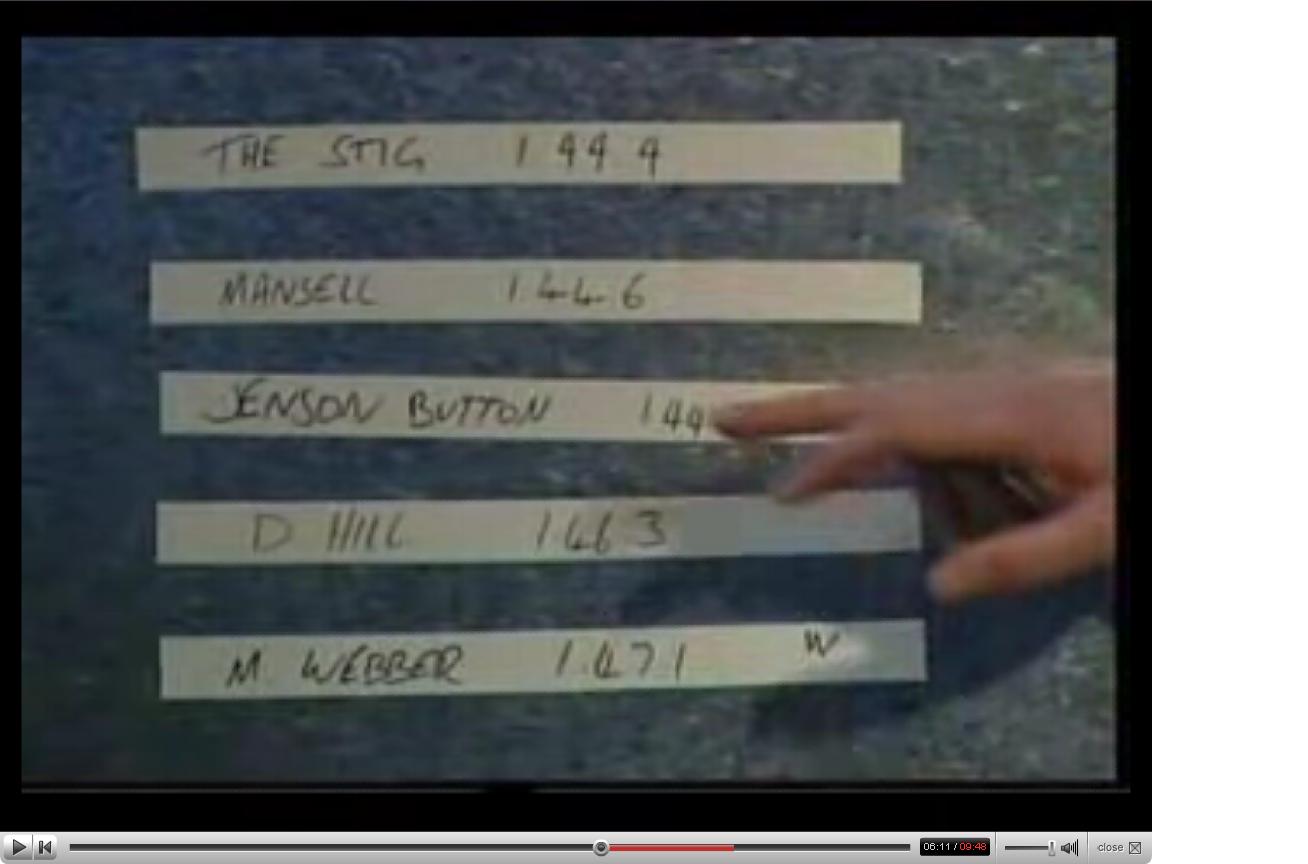 THE STIG 1 44 4
MANSELL 1 44 6
JENSON BUTTON 1 44
D HILL 1 46 3
M WEBBER 1.47 1 W
06:11 / 09:48
close